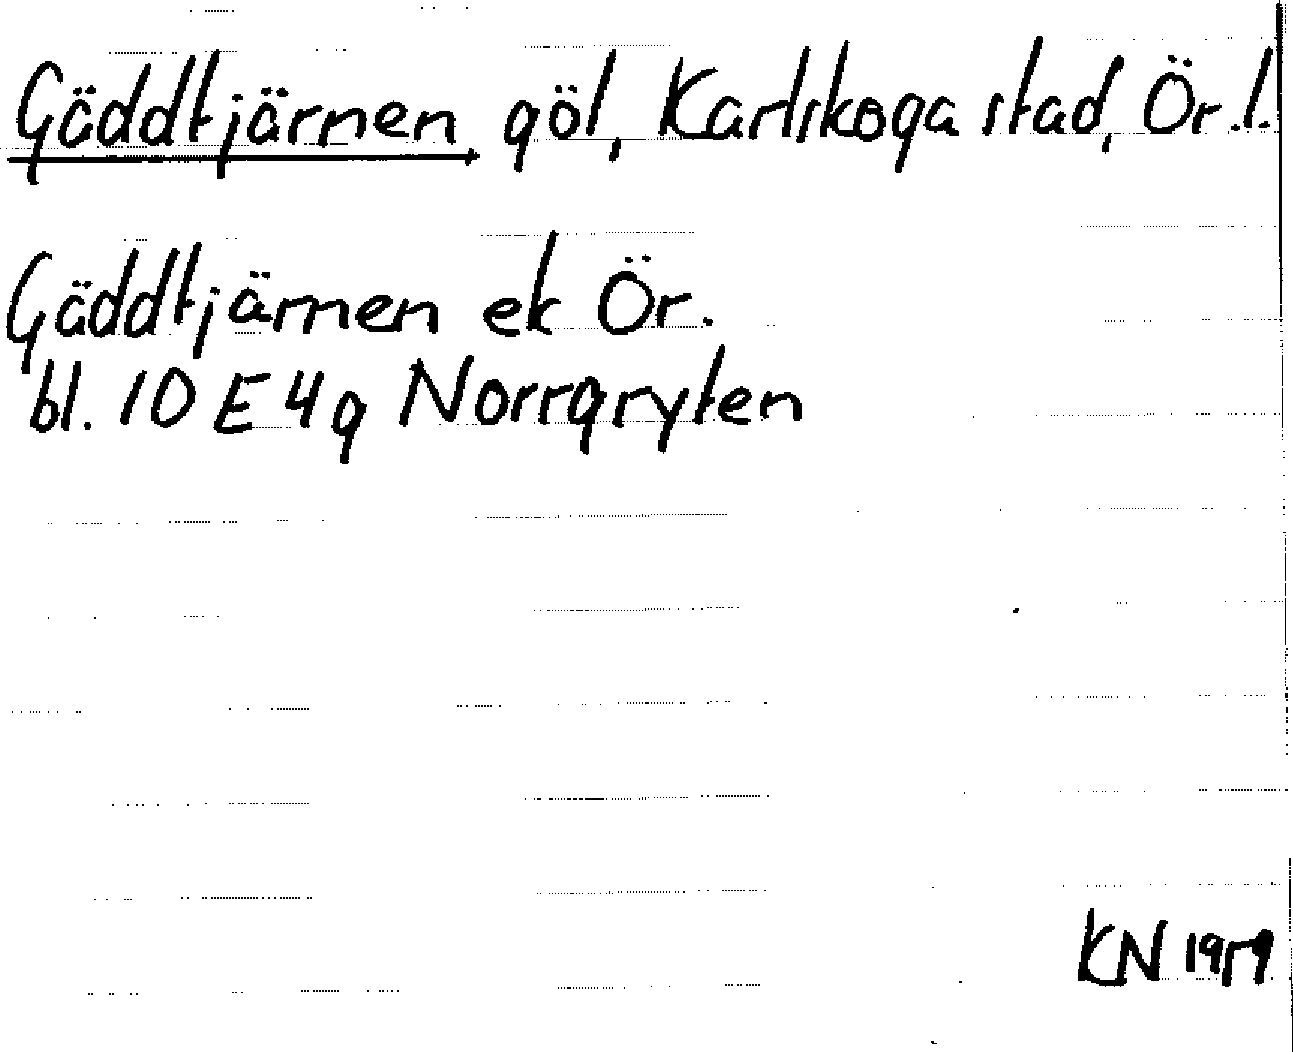 Gäddtjärnen göl, Karlskoga stad, Ör.l.
Gäddtjärnen ek Ör.
bl. 10 E 4g Norrgryten
KN 1979